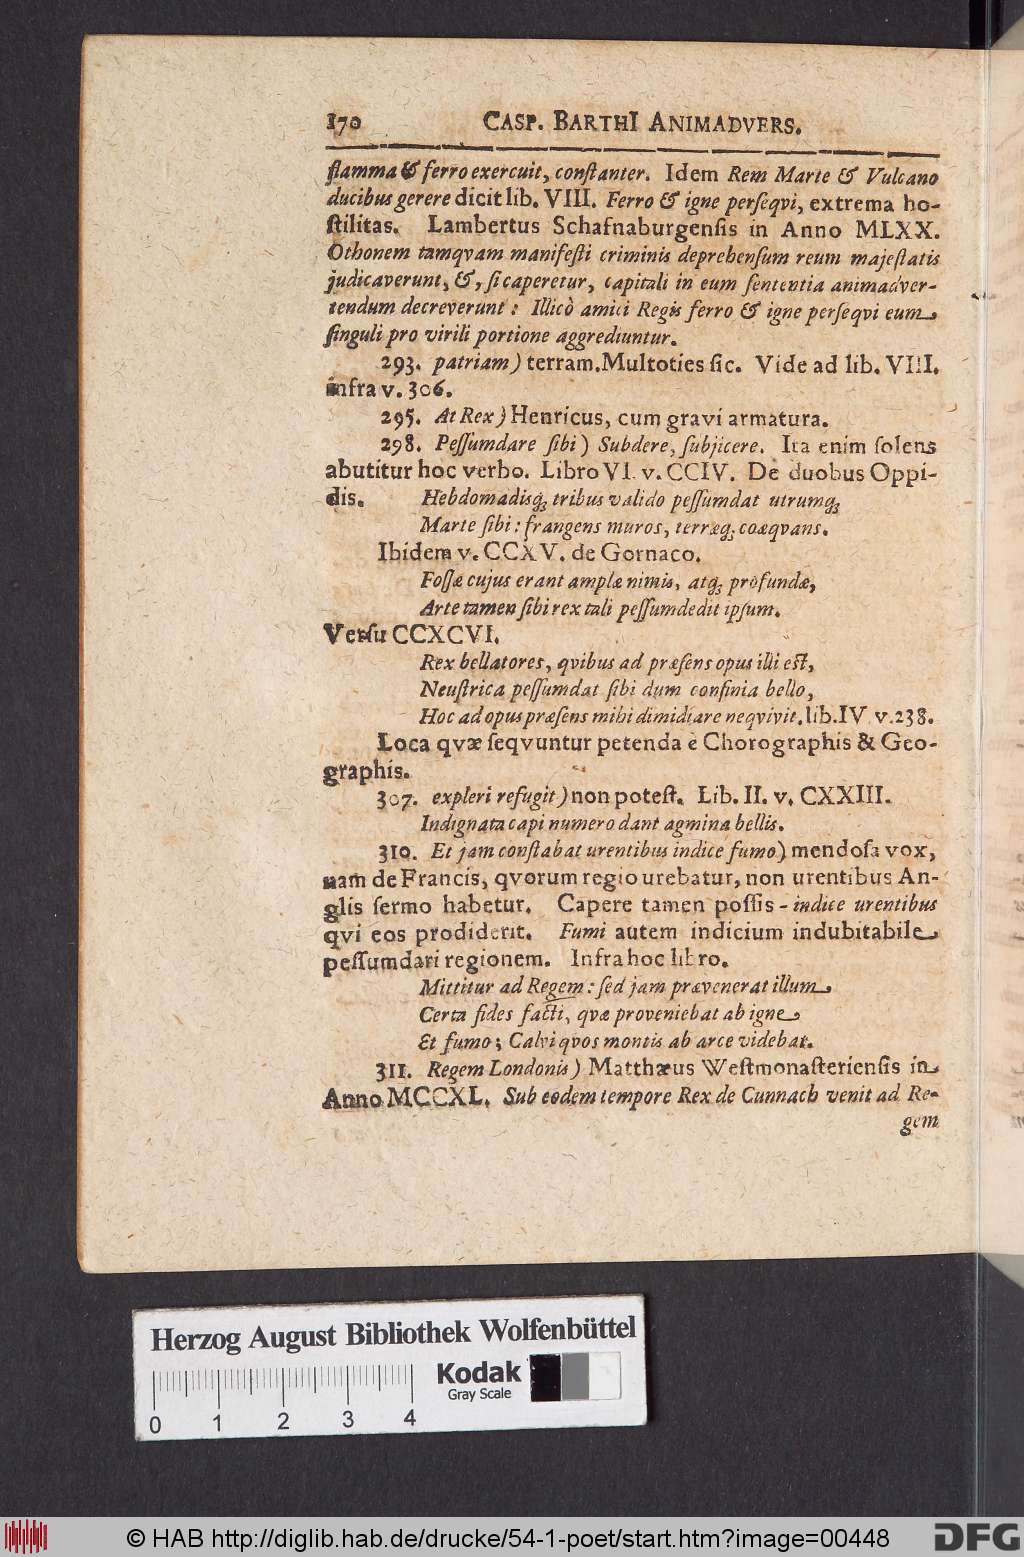 170 CASP. BARTHI ANIMADVERS.
flamma & ferro exercuit, conſtanter. Idem Rem Marte & Vulcano
ducibus gerere dicit lib. VIII. Ferro & igne perſeqvi, extrema ho-
ſtilitas. Lambertus Schafnaburgenſis in Anno MLXX.
Othonem tamqvam manifeſti criminis deprehenſum reum majeſtatis
judicaverunt, &, ſi caperetur, capitali in eum ſententia animadver-
tendum decreverunt: Illicò amici Regis ferro & igne perſeqvi eum
ſinguli pro virili portione aggrediuntur.
293. patriam) terram. Multoties ſic. Vide ad lib. VIII.
infra v. 306.
295. At Rex) Henricus, cum gravi armatura.
298. Peſſumdare ſibi) Subdere, ſubjicere. Ita enim ſolens
abutitur hoc verbo. Libro VI. v. CCIV. De duobus Oppi-
dis. Hebdomadisq; tribus valido peſſumdat utrumq;
Marte ſibi: frangens muros, terræq; coæqvans.
Ibidem v. CCXV. de Gornaco.
Foſſæ cujus erant amplæ nimis, atq; profundæ,
Arte tamen ſibi rex tali peſſumdedit ipſum.
Verſu CCXCVI.
Rex bellatores, qvibus ad præſens opus illi eſt,
Neuſtrica peſſumdat ſibi dum confinia bello,
Hoc ad opus præſens mihi dimidiare neqvivit. lib. IV. v. 238.
Loca qvæ ſeqvuntur petenda è Chorographis & Geo-
graphis.
307. expleri refugit) non poteſt. Lib. II. v. CXXIII.
Indignata capi numero dant agmina bellis.
310. Et jam conſtabat urentibus indice fumo) mendoſa vox,
nam de Francis, qvorum regio urebatur, non urentibus An-
glis ſermo habetur. Capere tamen poſſis - indice urentibus
qvi eos prodiderit. Fumi autem indicium indubitabile
peſſumdari regionem. Infra hoc libro.
Mittitur ad Regem: ſed jam prævenerat illum
Certa fides facti, qvæ proveniebat ab igne
Et fumo; Calvi qvos montis ab arce videbat.
311. Regem Londonis) Matthæus Weſtmonaſterienſis in
Anno MCCXL. Sub eodem tempore Rex de Cunnach venit ad Re-
gem
Herzog August Bibliothek Wolfenbüttel
Kodak
Gray Scale
0 1 2 3 4
© HAB http://diglib.hab.de/drucke/54-1-poet/start.htm?image=00448
DFG